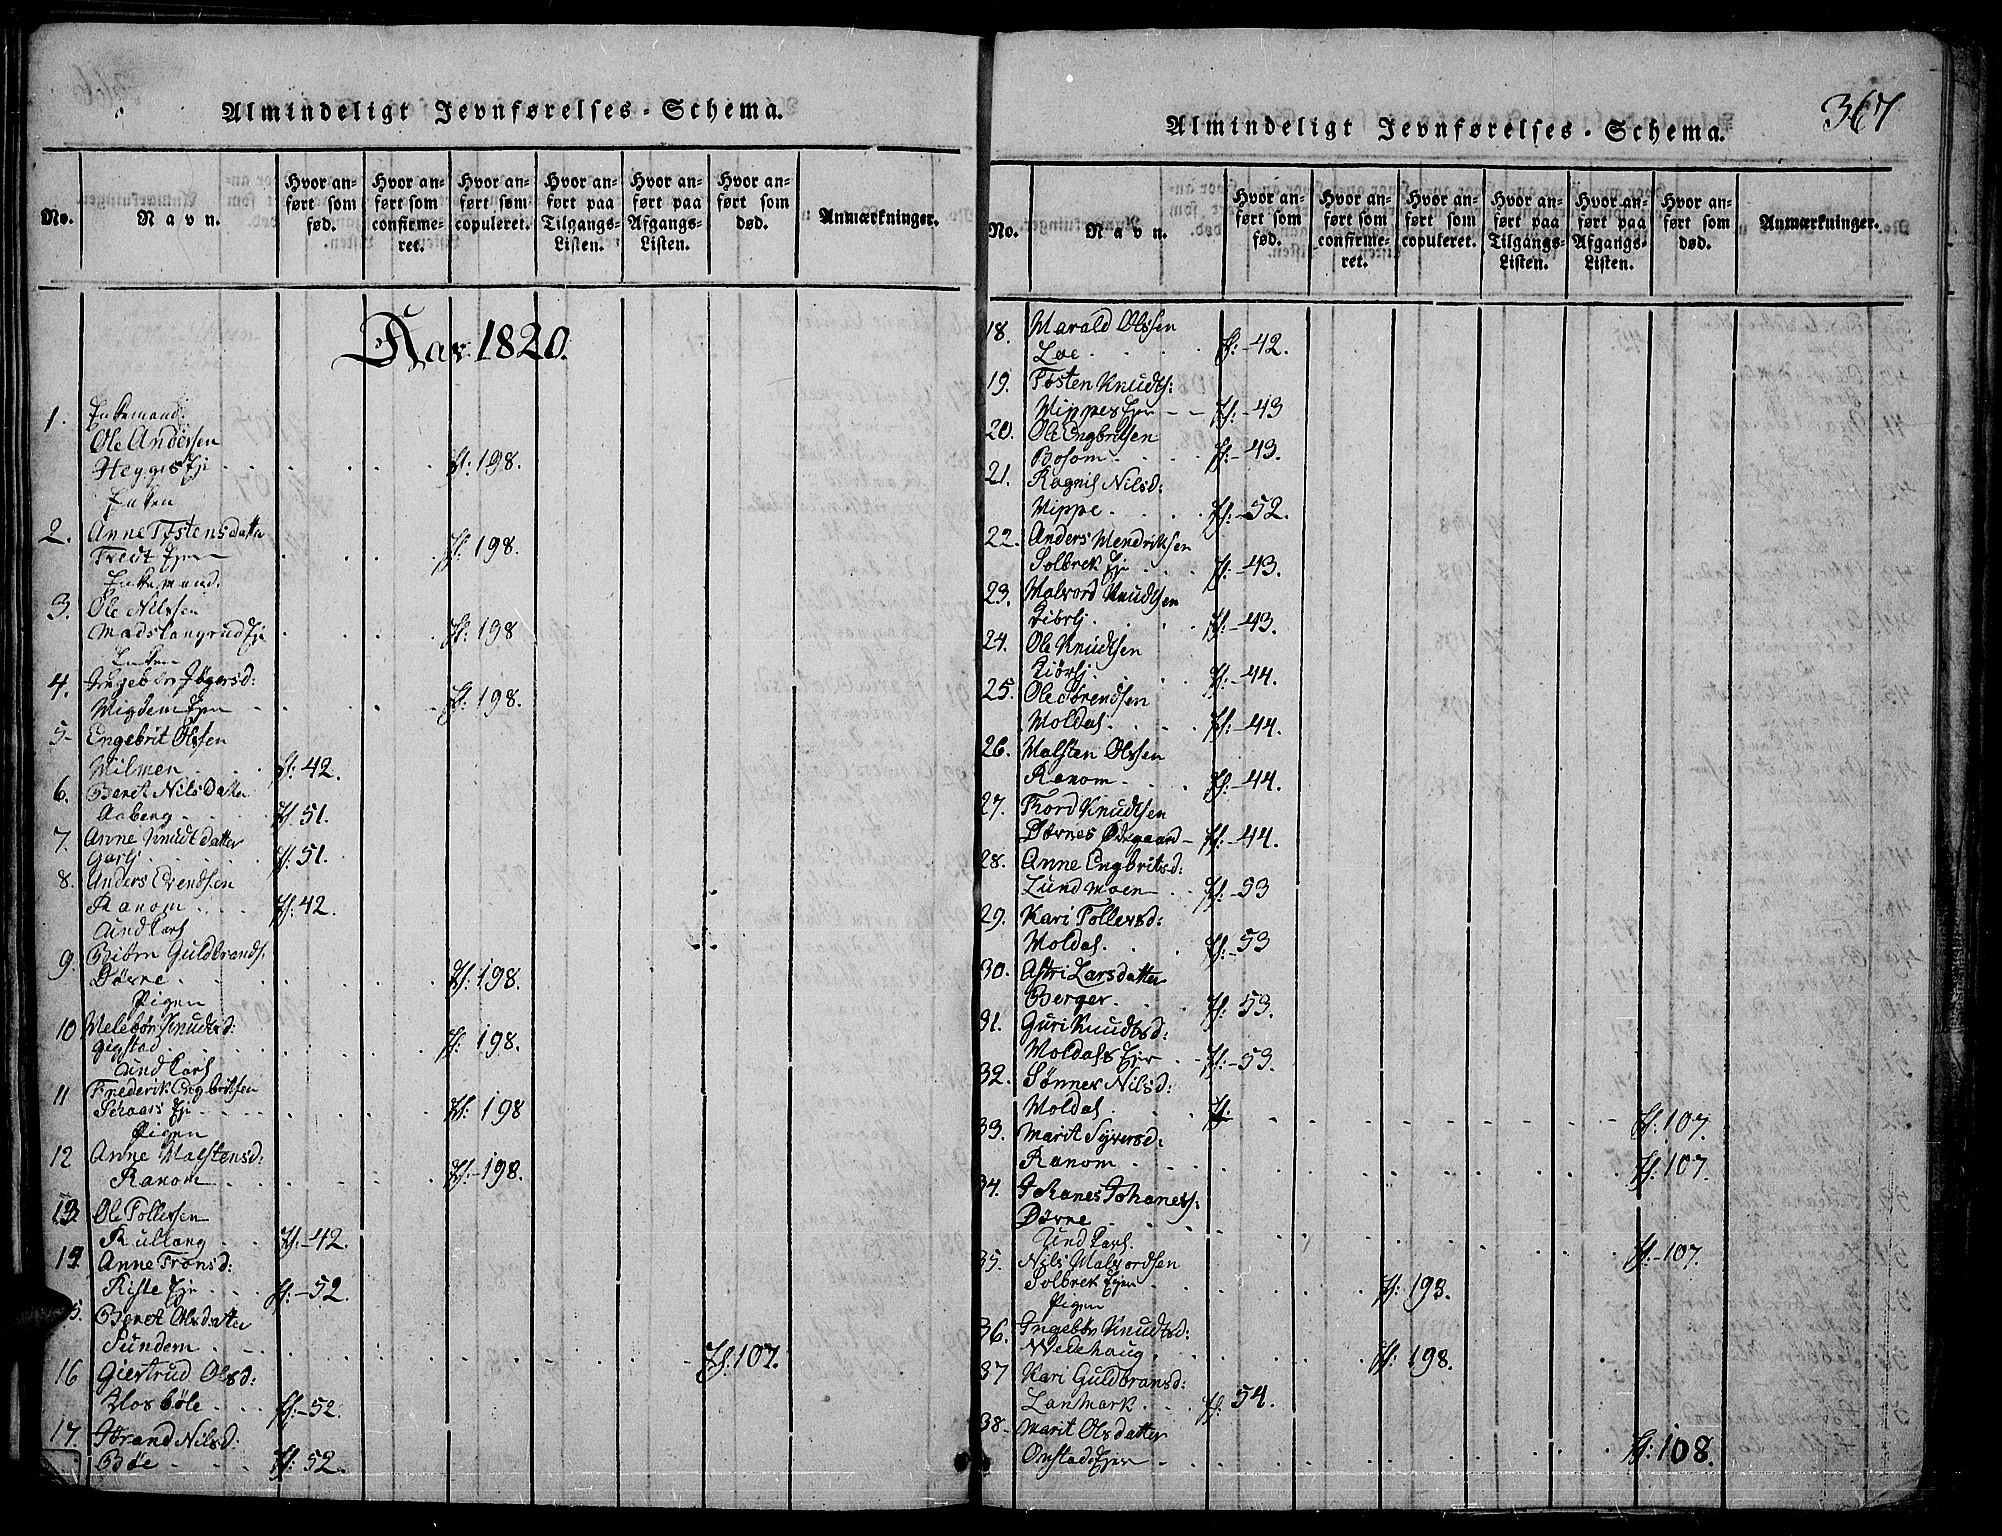 Almindeligt Jevnførelses-Schema.
No.
Navn.
Hvor an-
ført som
fød.
Hvor an-
ført som
confirme-
ret.
Hvor an-
ført som
copuleret.
Hvor an-
ført paa
Tilgangs-
Listen.
Hvor an-
ført paa
Afgangs-
Listen.
Hvor an-
ført som
død.
Anmærkninger.
Aar 1820.
1. Enkemand.
Ole Andersen
Hegges Eje f: 198.
Enken
2. Anne Tøstensdatter
Tredt Ejer f: 198.
Enkemand.
3. Ole Nilssen
Madslangrud Eje f: 198
Enken
4.
f: 198.
5- Engebrit Olssen
Hilmen f: 42.
6. Berit Nilsdatter
Aaberg f: 51.
7. Anne Knudtdatter
Garli f: 51.
8. Anders Evendsen
Ranom f: 42.
Und Karl
9. Biørn Guldbrands.
Dørne f: 198.
Pigen
10 Knudtsd:
f: 198.
Und Karl
11 Frederik Engbritsen
Eje f: 198
Pigen
12 Anne Halstensd:
Ranom f: 198.
13 Ole Tollefsen
Kullang f: 42.
14 Anne Tronsd:
Riste Eje f: 52.
5. Berit Olsdatter
Sundem f: 107.
16 Giertrud Olsd:
Hosbøle f: 52.
17. Nilsd:
Bøe f: 52.
Almindeligt Jevnførelses-Schema.
367
No.
Navn.
Hvor an-
ført som
fød.
Hvor an-
ført som
confirme-
ret.
Hvor an-
ført som
copuleret.
Hvor an-
ført paa
Tilgangs-
Listen.
Hvor an-
ført paa
Afgangs-
Listen.
Hvor an-
ført som
død.
Anmærkninger.
18. Harald Olssen
Loe f: 42.
19. Tøsten Knudts:
Hippes Ejer f: 43
20. Ole Engbritsen
Bosom f: 43.
21. Ragnil Nilsd:
Hippe f: 52.
22. Anders Hendriksen
Solbrek Eje f: 43.
23. Halvord Knudtsen
f: 43.
24. Ole Knudtsen
f: 44.
25. Ole Sørendsen
Moldal f: 44.
26. Halsten Olssen
Ranom f: 44.
27. Thord Knudtsen
Dørnes Ødegaard f: 44.
28. Anne Engbritsd:
Lundmoen f: 53
29. Kari Tollefsd:
Moldal. f: 53
30. Astri Larsdatter
Berger. f: 53.
31. Guri Knudtsd:
Moldals Ejer f: 53.
32. Sønnev Nilsd:
Moldal f: f: 107.
33. Marit Syversd:
Ranom f: 107.
34. Johanes Johaness:
Dørne f: 107.
Und Karl.
35. Nils Halvordsen
Solbrek Ejer f: 193.
Pigen
36. Ingebør Knudtsd:
Wellhaug f: 198.
37 Kari Guldbransd:
Lanmark f: 54.
38- Marit Olsdatter
Omstad Ejer f: 108.